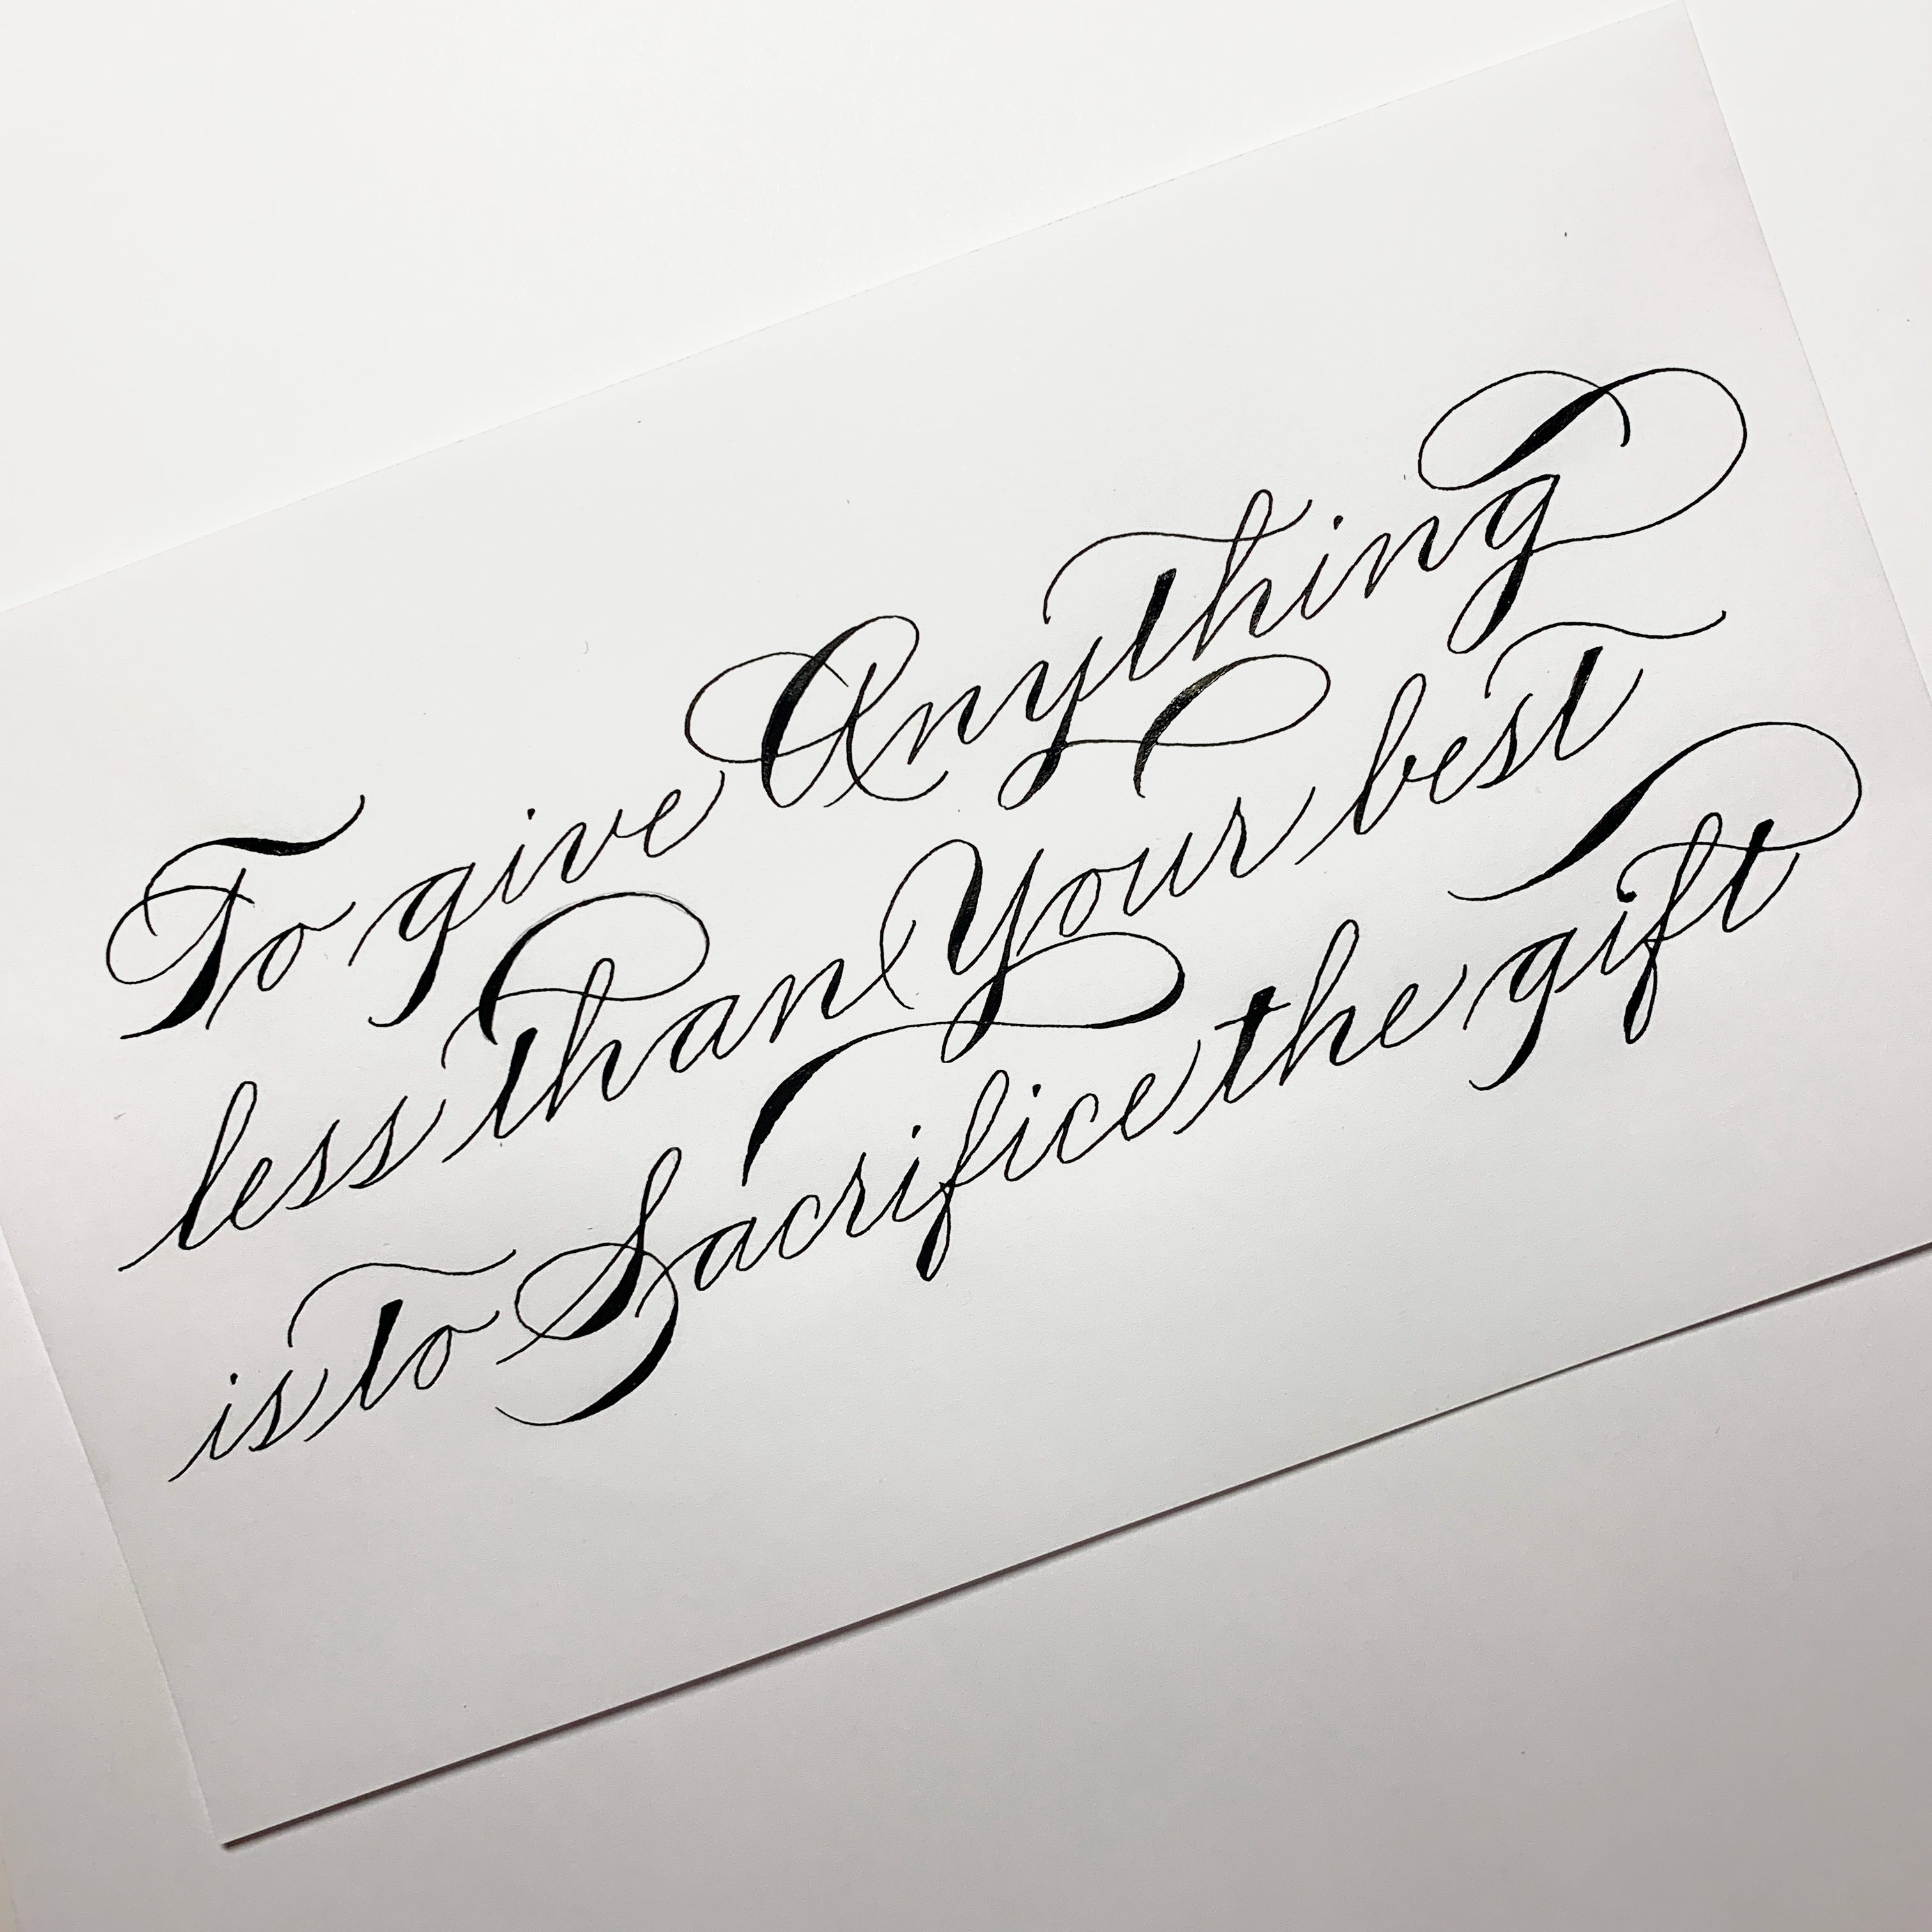 To give Anything
less than Your best
is to Sacrifice the gift